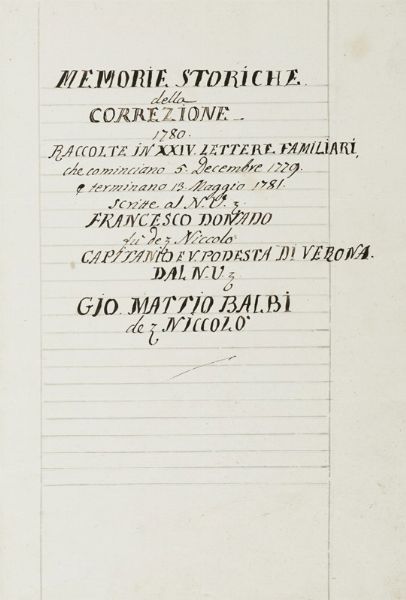 MEMORIE STORICHE
della
CORREZIONE
1780.
RACCOLTE IN XXIV. LETTERE FAMILIARI,
che cominciano 5. Decembre 1779.
e terminano 13. Maggio 1781.
Scritte al N. V. z
FRANCESCO DONADO
fù de z Niccolò
CAPITANIO E V. PODESTA DI VERONA.
DAL N. U z
GIO. MATTIO BALBI
de z NICCOLO'